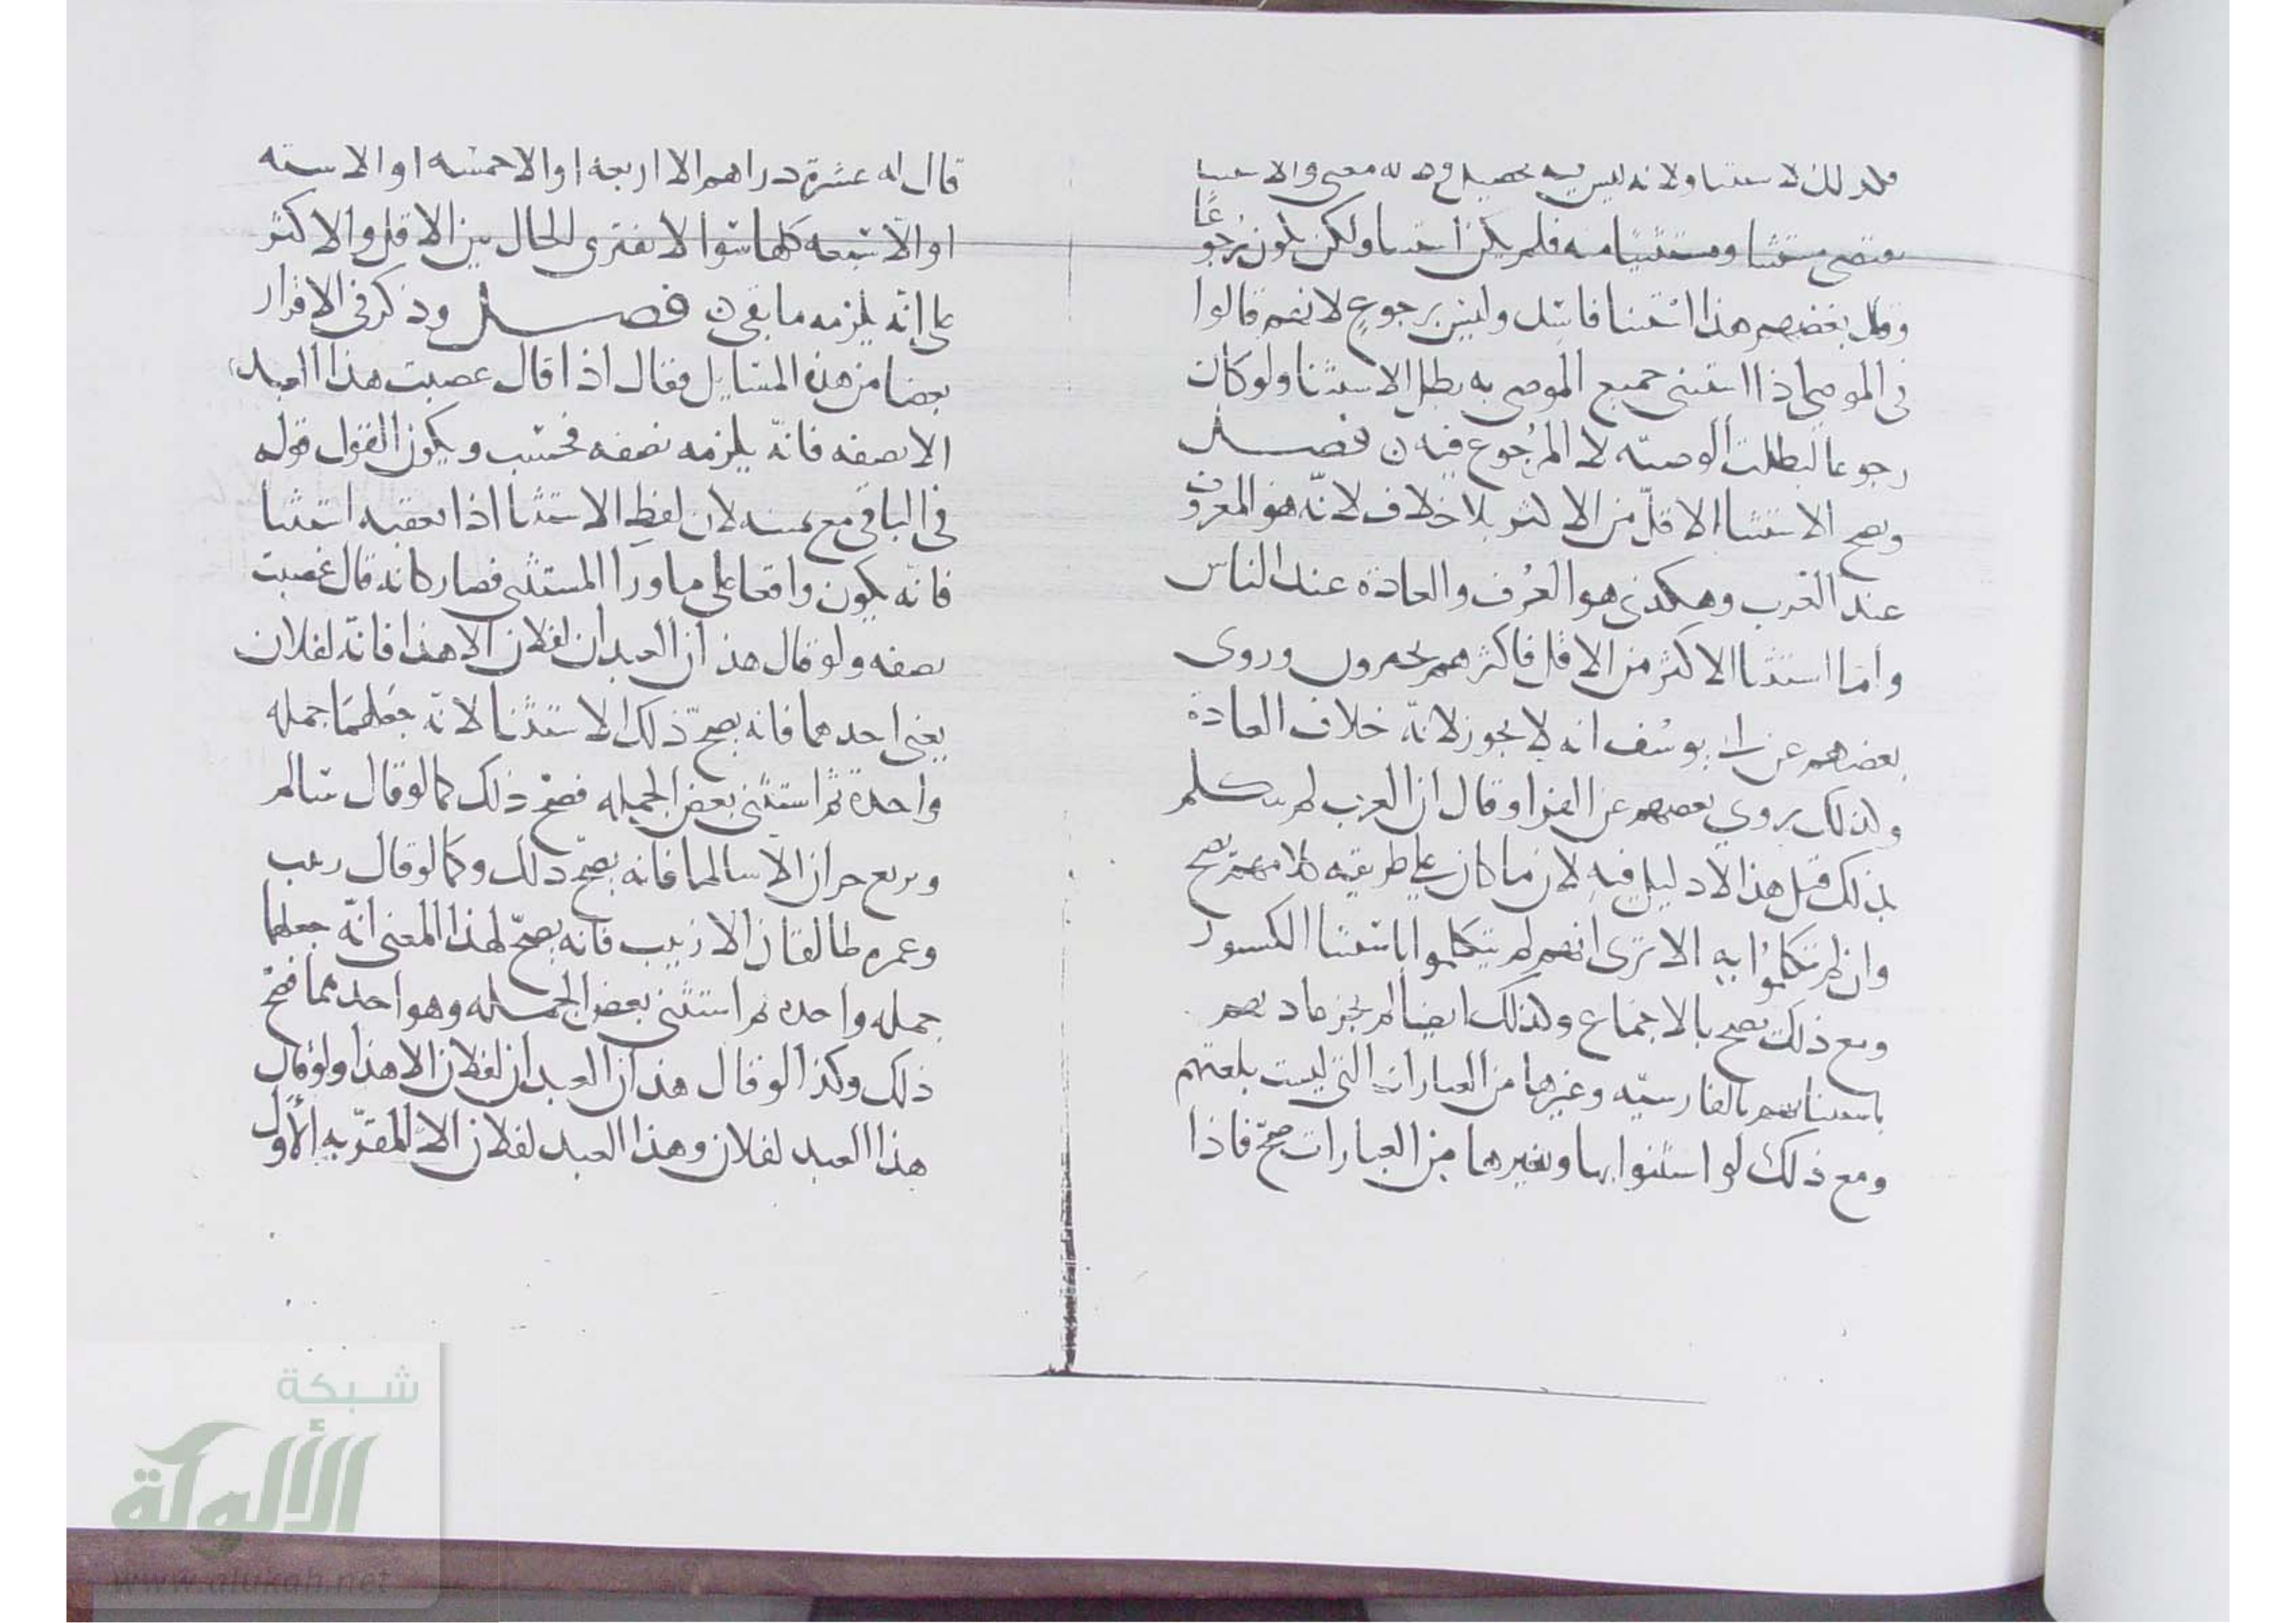 فلذلك الاستثنا ولانه ليس فيه معنى والاستثنا
يقتضي مستثنا ومستثنيا منه فلم يكن استثنا ولكن يكون رجوعًا
وقال بعضهم هذا استثنا فاسد وليس برجوع لانهم قالوا
في الموصي اذا استثنى جميع الموصى به بطل الاستثنا ولو كان
رجوعا لبطلت الوصيّه لان المرجوع فيه ن فصــل
ويصح الاستثنا الاقلّ من الاكثر بلا خلاف لانّه هو المعروف
عند العرب وهكذى هو العُرف والعادة عند الناس
وامّا استثنا الاكثر من الاقل فاكثرهم يجيزون وروى
بعضهم عن ابي يوسُف انه لا يجوز لانّه خلاف العادة
ولذلك يروي بعضهم عن الفرا وقال ان العرب لم تتكلم
بذلك قيل هذا لا دليل فيه لان ما كان على طريقة كلامهم يصح
وان لم يتكلموُا به الا ترى انهم لم يتكلموا باستثنا الكسور
ومع ذلك يصح بالاجماع وكذلك ايضا لم تجز عادتهم
باستثنائهم بالفارسيّه وغيرها من العبارات التي ليست بلغتهم
ومع ذلك لو استثنوا بها وبغيرها من العبارات صحّ فاذا
قال له عشرة دراهم الا اربعه او الا خمسه او الا سته
او الا سبعه كلها سوا لا يفترق الحال بين الاقل والاكثر
على انّه يلزمه ما بقي ن فصــل وذكر في الاقرار
بعضا من هذه المسايل فقال اذا قال غصبت هذا العبد
الا نصفه فانّه يلزمه نصفه فحسب ويكون القول قوله
في الباقي مع يمينه لان لفظ الاستثنا اذا تعقبه استثنا
فانّه يكون واقعا على ما ورا المستثنى فصار كانه قال غصبت
نصفه ولو قال هذان العبدان لفلان الا هذا فانّه لفلان
يعني احدهما فانه يصحّ ذلك الاستثنا لانّه جعلهمَا جمله
واحدة ثم استثنى بعض الجمله فصح ذلك كما لو قال سالم
وبزيع حران الا سالما فانه يصحّ ذلك وكما لو قال زينب
وعمره طالقان الا زينب فانه يصحّ لهذا المعنى انّه جعلهما
جمله واحده ثم استثنى بعض الجمــله وهو احدهما فصح
ذلك وكذا لو قال هذان العبدان لفلان الا هذا ولو قال
هذا العبد لفلان وهذا العبد لفلان الا المقرّ به الاول
شبكة
الألوكة
www.alukah.net